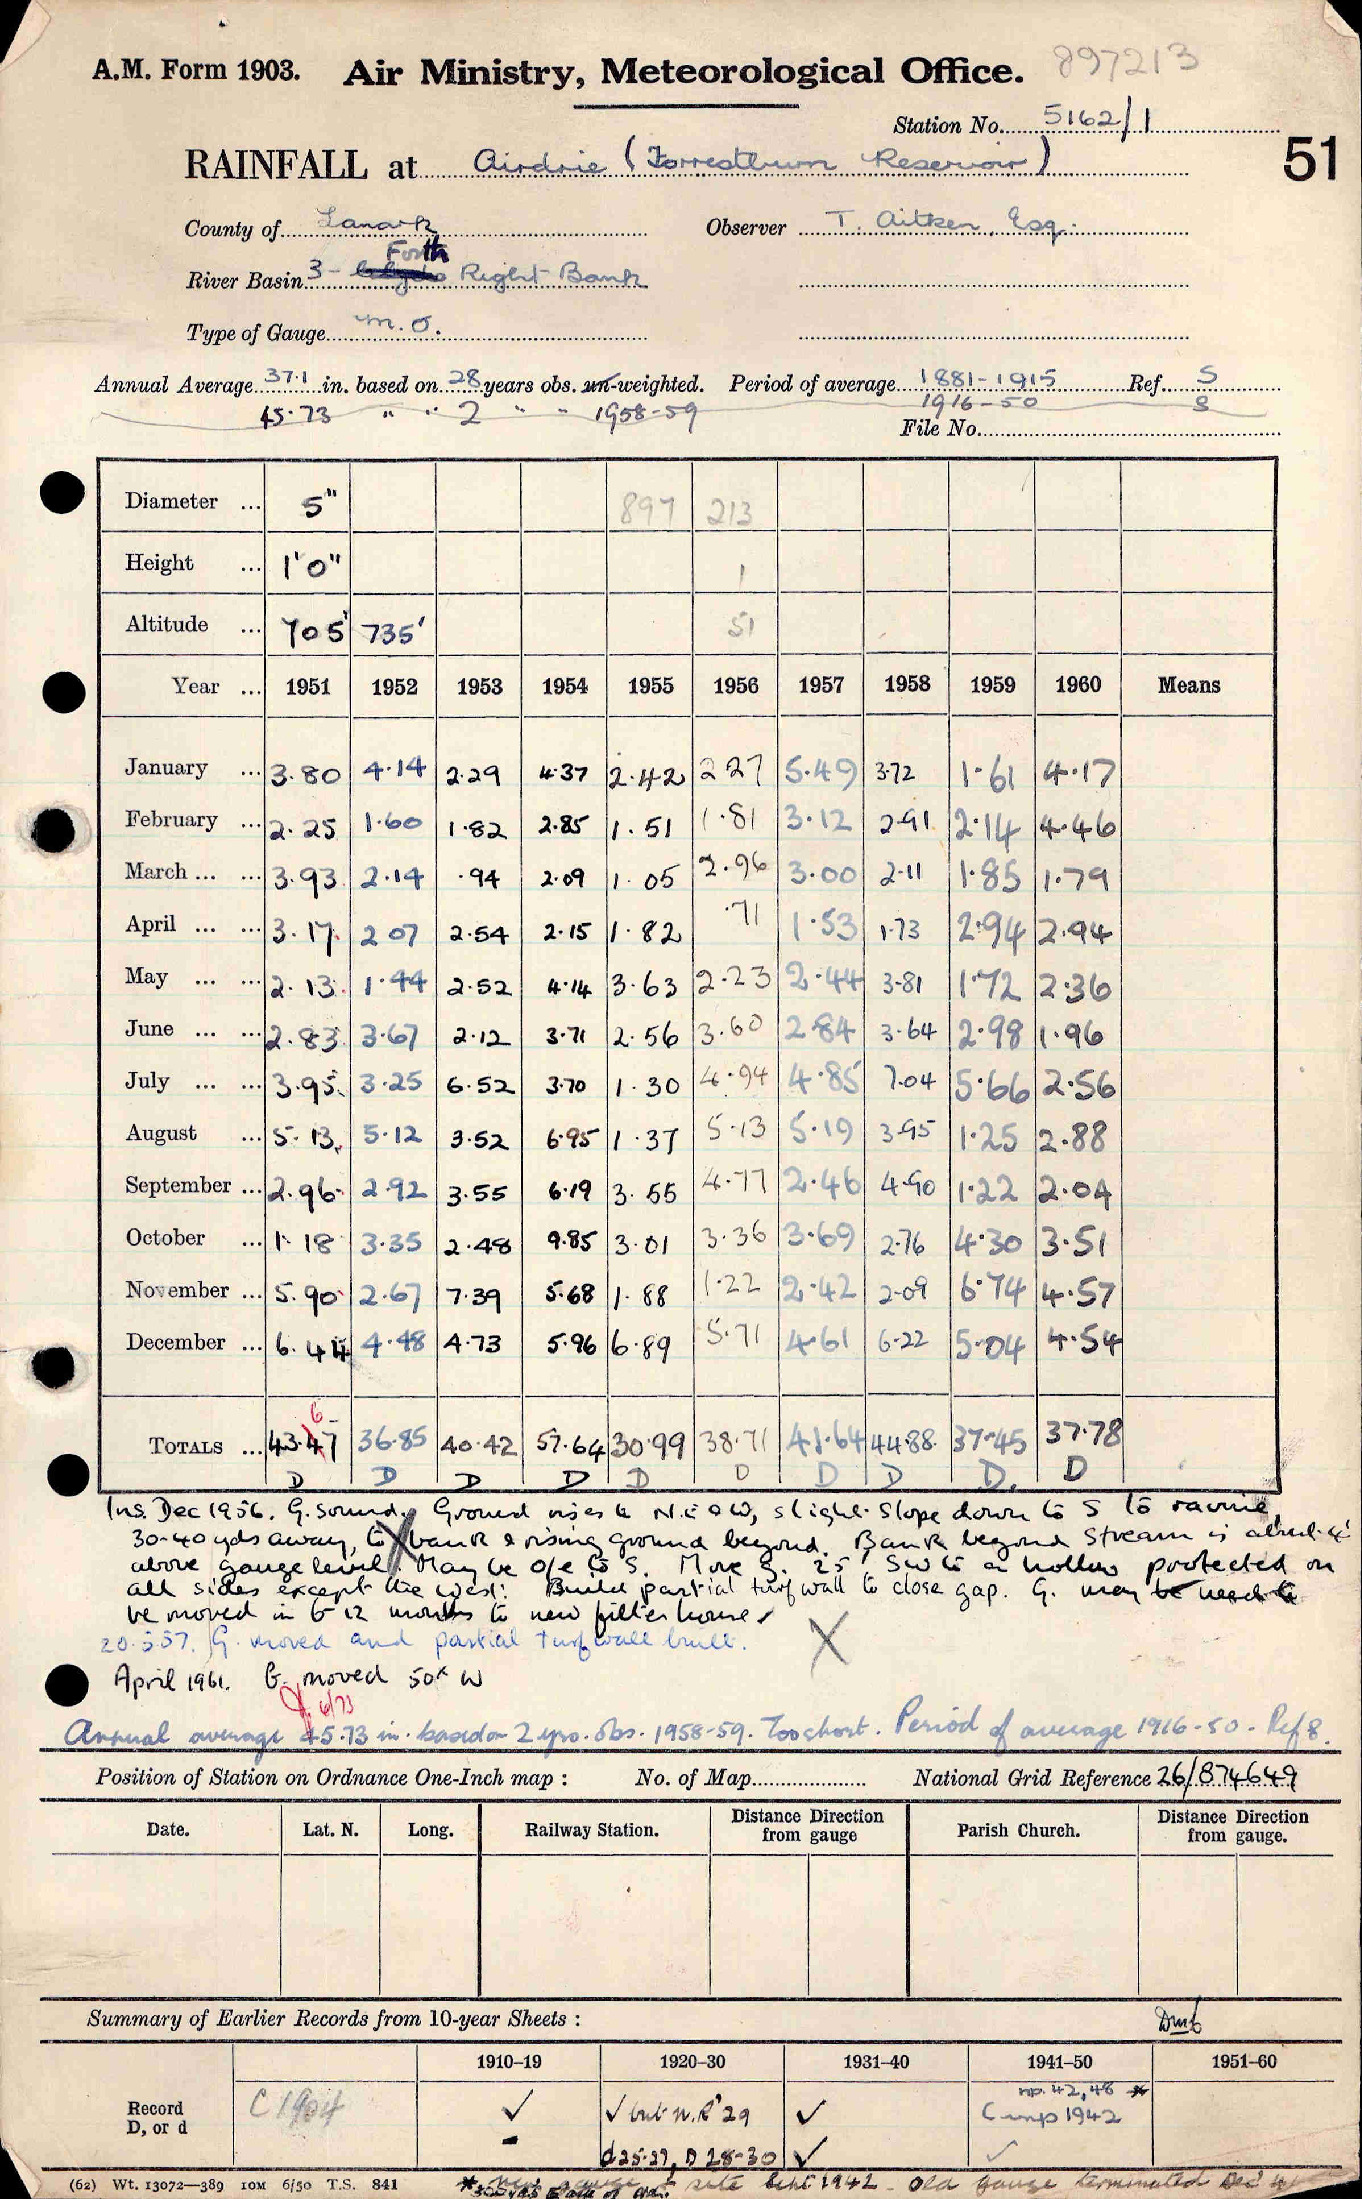 A.M. Form 1903. Air Ministry, Meteorological Office. 897213
Station No. 5162/1
51
RAINFALL at Airdrie (Forrestburn Reservoir)
County of Lanark Observer T. Aitken, Esq.
Forth
River Basin 3 - Clyde Right Bank
Type of Gauge m.o.
Annual Average 37.1 in. based on 28 years obs. un-weighted. Period of average 1881-1915 Ref. S
45.73 " " 2 " " 1958-59 1916-50 8
File No.
Diameter ... 5" 897 213
Height ... 1'0" 1
Altitude ... 705' 735' 51
Year ... 1951 1952 1953 1954 1955 1956 1957 1958 1959 1960 Means
January ... 3.80 4.14 2.29 4.37 2.42 2.27 5.49 3.72 1.61 4.17
February ... 2.25 1.60 1.82 2.85 1.51 1.81 3.12 2.91 2.14 4.46
March ... ... 3.93 2.14 .94 2.09 1.05 2.96 3.00 2.11 1.85 1.79
April ... ... 3.17 2 07 2.54 2.15 1.82 .71 1.53 1.73 2.94 2.94
May ... ... 2.13 1.44 2.52 4.14 3.63 2.23 2.44 3.81 1.72 2.36
June ... ... 2.83 3.67 2.12 3.71 2.56 3.60 2.84 3.64 2.98 1.96
July ... ... 3.95 3.25 6.52 3.70 1.30 4.94 4.85 7.04 5.66 2.56
August ... 5.13 5.12 3.52 6.95 1.37 5.13 5.19 3.95 1.25 2.88
September ... 2.96 2.92 3.55 6.19 3.55 4.77 2.46 4.90 1.22 2.04
October ... 1.18 3.35 2.48 9.85 3.01 3.36 3.69 2.76 4.30 3.51
November ... 5.90 2.67 7.39 5.68 1.88 1.22 2.42 2.09 6.74 4.57
December ... 6.44 4.48 4.73 5.96 6.89 5.71 4.61 6.22 5.04 4.54
6
TOTALS ... 43.47 36.85 40.42 57.64 30.99 38.71 41.64 44.88 37.45 37.78
D D D D D D D D D. D
Ins. Dec 1956. G. sound. Ground rises to N.E & W, slight slope down to S to ravine,
30-40 yds away, to bank & rising ground beyond. Bank beyond stream is about 4'
above gauge level. May be o/e to S. Move G. 25' SW to a hollow protected on
all sides except the west. Build partial turf wall to close gap. G. may be need to
be moved in 6-12 months to new filter house.
20.5.57. G. moved and partial turf wall built. X
April 1961. G. moved 50x W
6/73
Annual average 45.73 in. based on 2 yrs. obs. 1958-59. Too short. Period of average 1916-50 - Ref 8.
Position of Station on Ordnance One-Inch map : No. of Map National Grid Reference 26/874649
Date. Lat. N. Long. Railway Station. Distance Direction from gauge Parish Church. Distance Direction from gauge.
Summary of Earlier Records from 10-year Sheets :
1910–19 1920–30 1931–40 1941–50 1951–60
Record D, or d C 1904 ✓ ✓ but n.R '29 ✓ no. 42, 48 *
C imp 1942
- d 25-27, D 28-30 ✓ ✓
(62) Wt. 13072—389 10M 6/50 T.S. 841 * New gauge site Sept 1942 - Old gauge terminated Dec